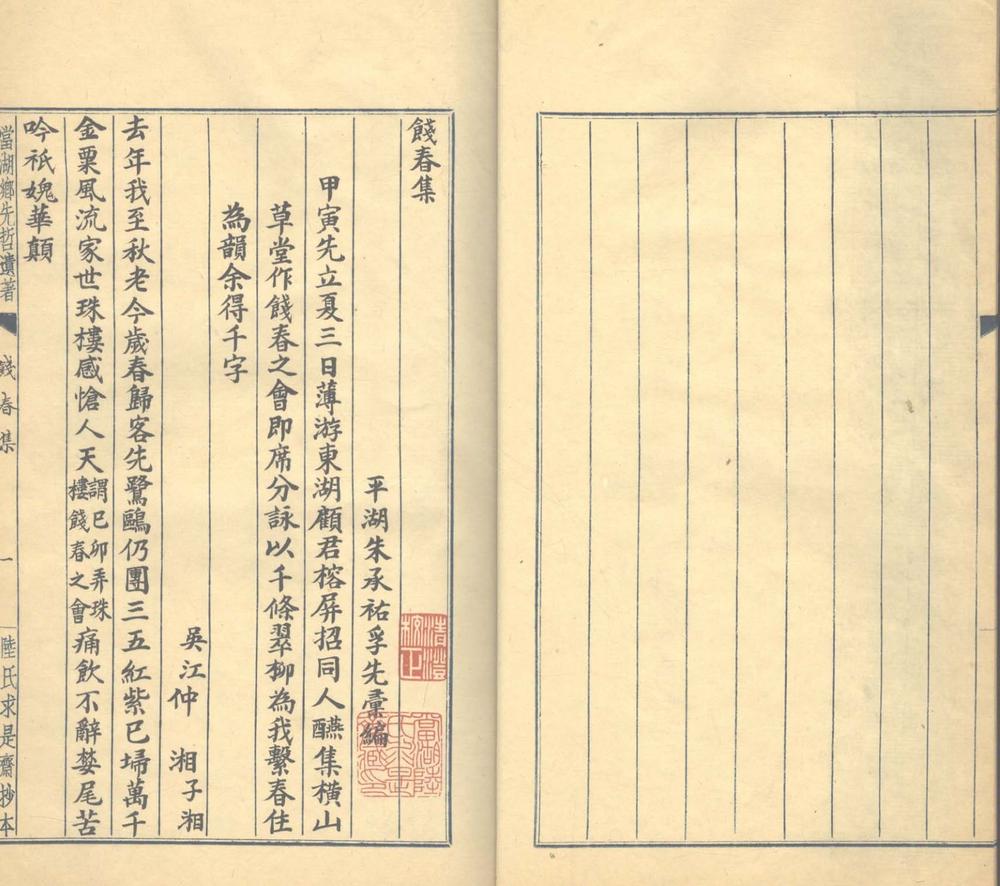 餞春集
平湖朱承祐孚先彙編
甲寅先立夏三日薄游東湖顧君榕屏招同人醼集橫山
草堂作餞春之會即席分詠以千條翠柳為我繫春住
為韻余得千字
吳江仲 湘子湘
去年我至秋老今歲春歸客先鷺鷗仍團三五紅紫已埽萬千
金粟風流家世珠樓感愴人天謂己卯弄珠樓餞春之會痛飲不辭婪尾苦
吟祇媿華顛
當湖鄉先哲遺著 餞春集 一 陸氏求是齋抄本
清澄校正
當湖陸氏求是齋藏印